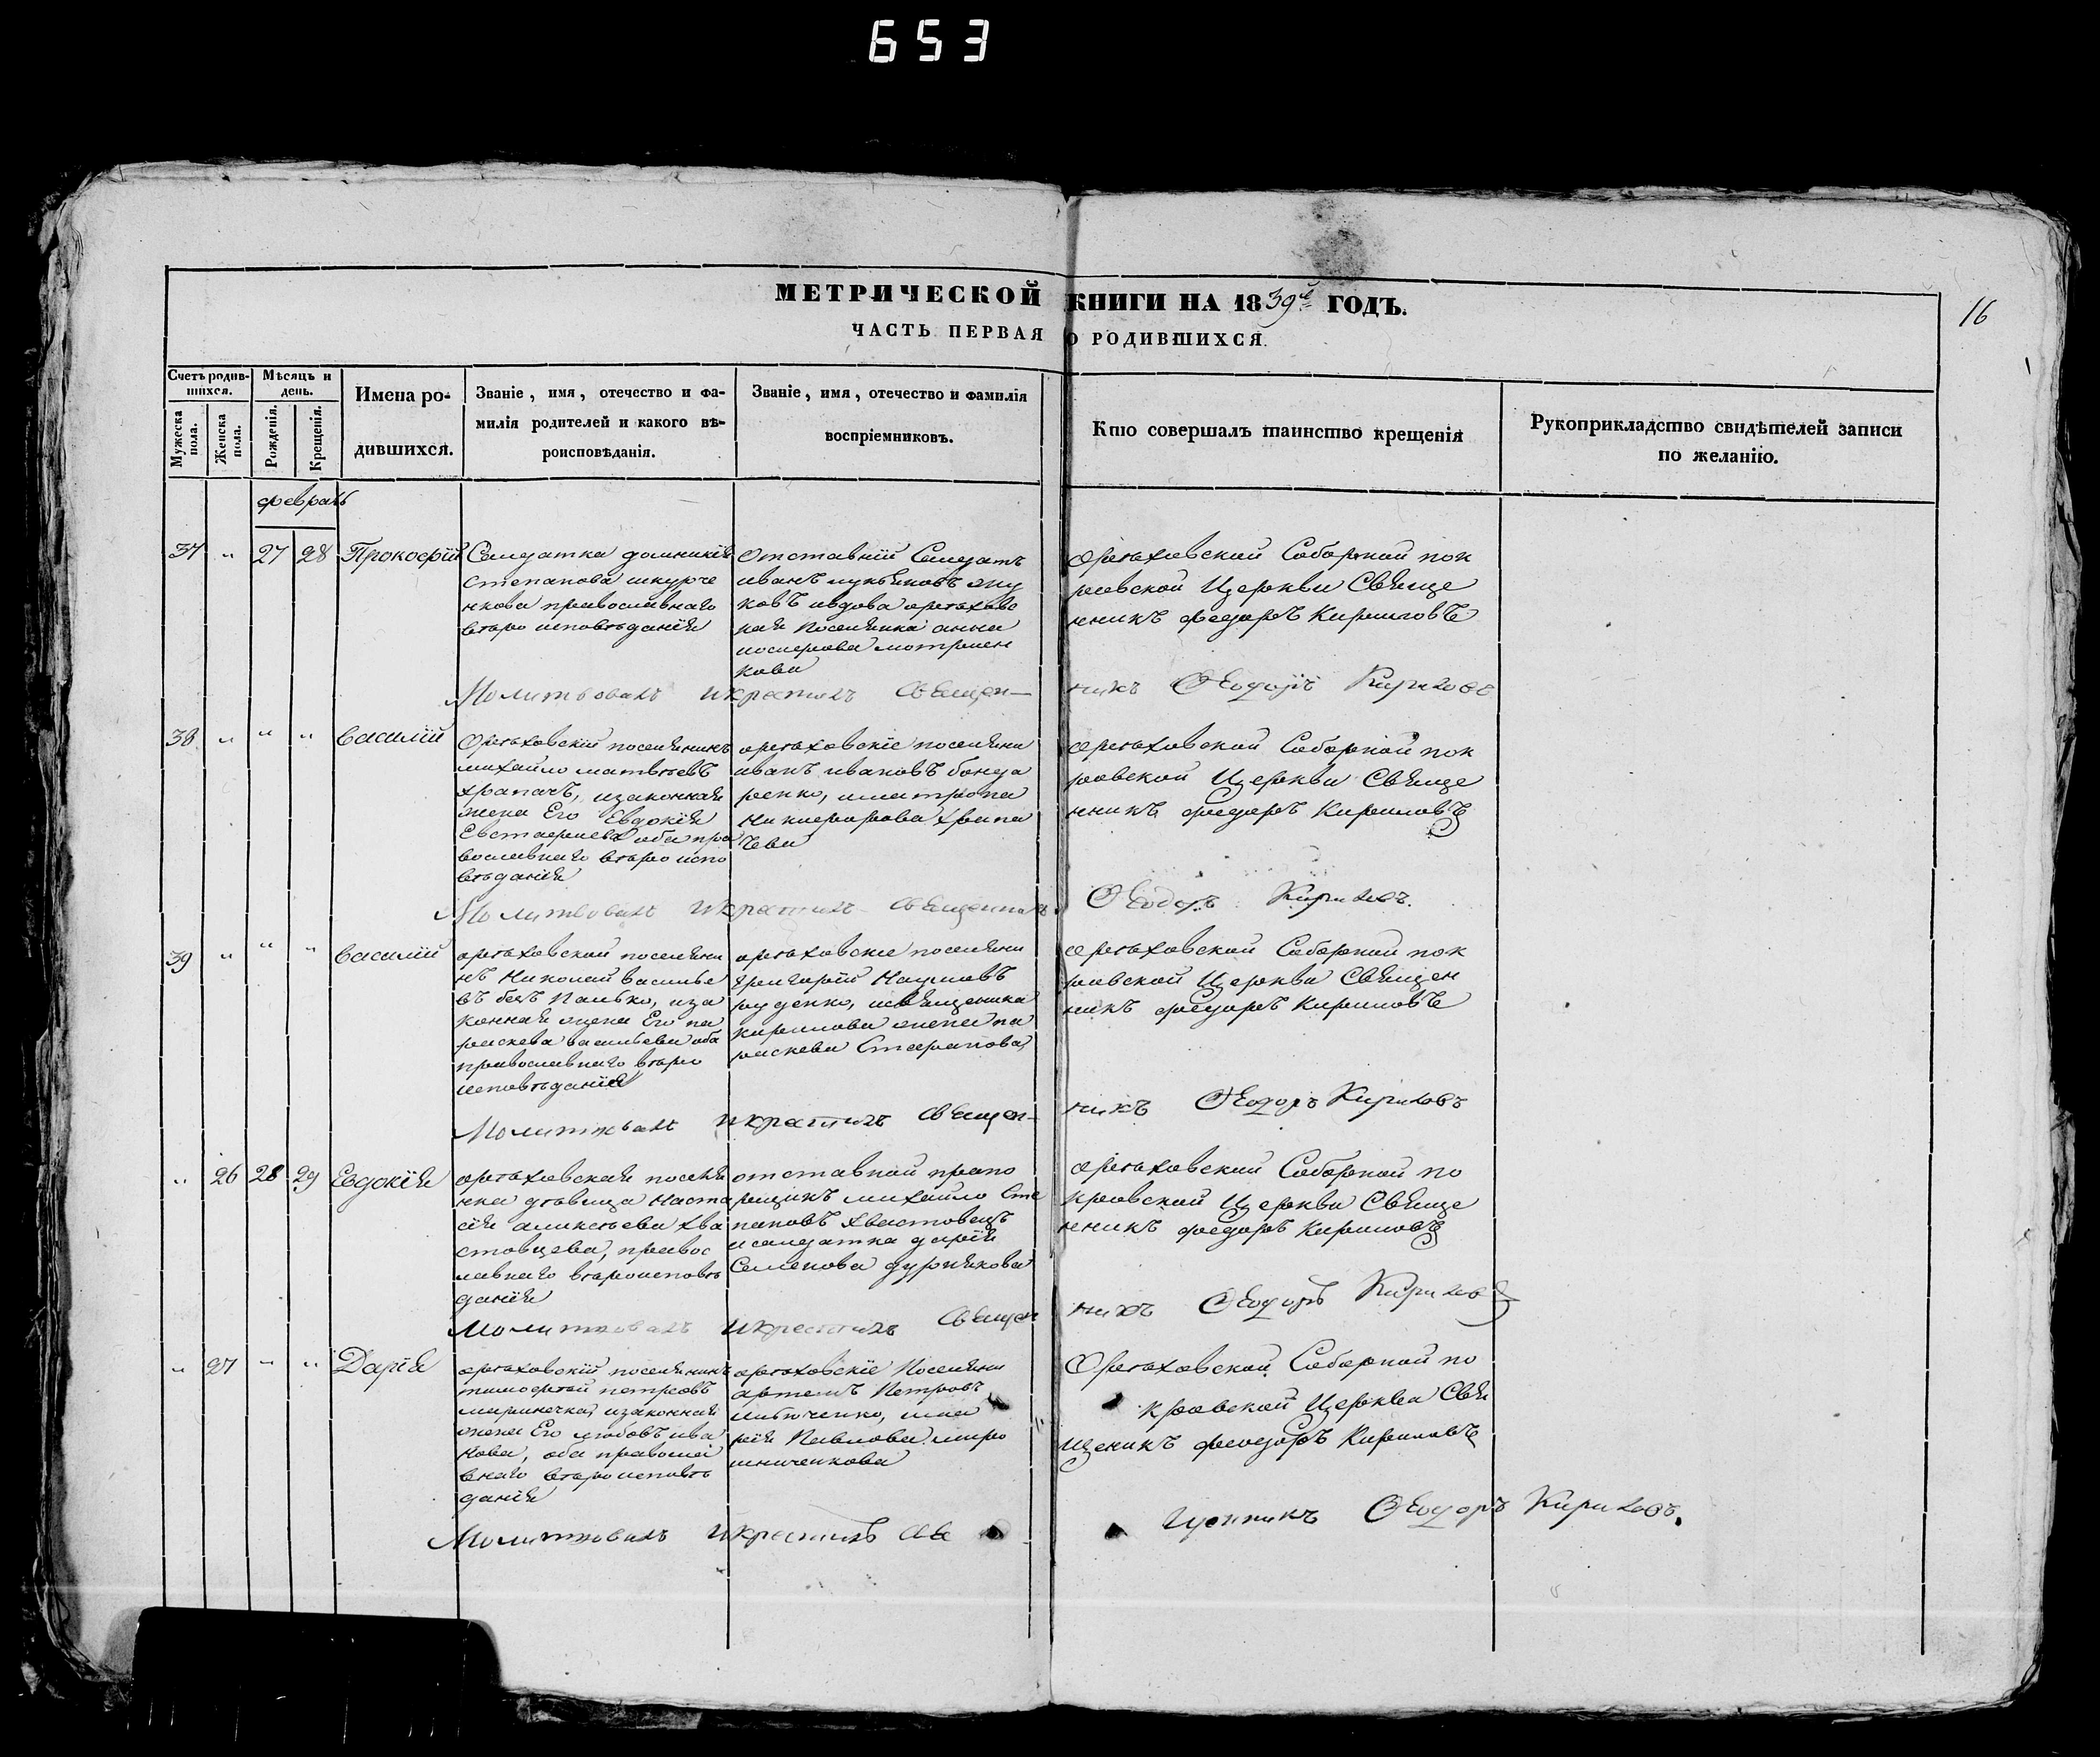 653
МЕТРИЧЕСКОЙ КНИГИ НА 1839й ГОДЪ.
16
ЧАСТЬ ПЕРВАЯ О РОДИВШИХСЯ.
Счетъ родив-
шихся.
Мужеска пола.
Женска пола.
Мѣсяцъ и
день.
Рожденія.
Крещенія.
Имена ро-
дившихся.
Званіе, имя, отечество и фа-
милія родителей и какого вѣ-
роисповѣданія.
Званіе, имя, отечество и фамилія
воспріемниковъ.
Кто совершалъ таинство крещенія
Рукоприкладство свидѣтелей записи
по желанію.
февраль
37 " 27 28 Прокофій
Салдатка домникія
степанова шкурче
нкова православнаго
вѣро исповѣданія
Отставній Салдатъ
иванъ лукьяновъ жу
ковъ ивдова орѣхово
кая Поселянка анна
иосифова мотриен
кова
орѣховской Соборной пок
ровской Церкви Свяще
нникъ федоръ Кириловъ
Молитвовалъ икрестилъ Священ-
никъ Ѳеодоръ Кириловъ
38 " " " василій
Орѣховскій поселянинъ
михайло матвѣевъ
храпачъ, изаконная
жена Его Евдокія
Евстафиева оба пра
вославнаго вѣро испо
вѣданія
орѣховскіе поселяни
иванъ ивановъ бонда
ренко, иматрона
Никифорова храпа
чева
орѣховской Соборной пок
ровской Церкви Свяще
нникъ федоръ Кириловъ
Молитвовалъ икрестилъ Священникъ
Ѳеодоръ Кириловъ.
39 " " " василій
орѣховской поселяни
нъ Николай василье
въ Панько, иза
конная жена Его па
раскева васильева оба
православнаго вѣро
исповѣданія
орѣховскіе поселяни
григорій Наумовъ
руденко, исвященика
кирилова жена па
раскева Стефанова,
орѣховской Соборной пок
ровской Церкви Священ
никъ федоръ Кириловъ
Молитвовалъ икрестилъ Священ-
никъ Ѳеодоръ Кириловъ
" 26 28 29 Евдокія
орѣховская поселя
нка дѣвица Наста
сія аликсѣева хва
стовцева, правос
лавнаго вѣроисповѣ
данія
отставной прапо
рщикъ михайло Сте
пановъ хвастовецъ
исалдатка дарія
Семенова дурнякова
орѣховской Соборной по
кровской Церкви Свяще
нникъ федоръ Кириловъ
Молитвовалъ икрестилъ Священ
никъ Ѳеодоръ Кириловъ
" 27 " " Дарія
орѣховскій поселянинъ
тимофей петровъ
изаконная
жена Его любовъ ива
нова, оба правосла
внаго вѣро исповѣ
данія
орѣховскіе Поселяни
артемъ Петровъ
има
рія Павлова миро
шниченкова
Орѣховской Соборной по
кровской Церкви Свя
щеникъ феодоръ Кириловъ
Молитвовалъ икрестилъ Свя
щенникъ Ѳеодоръ Кириловъ.